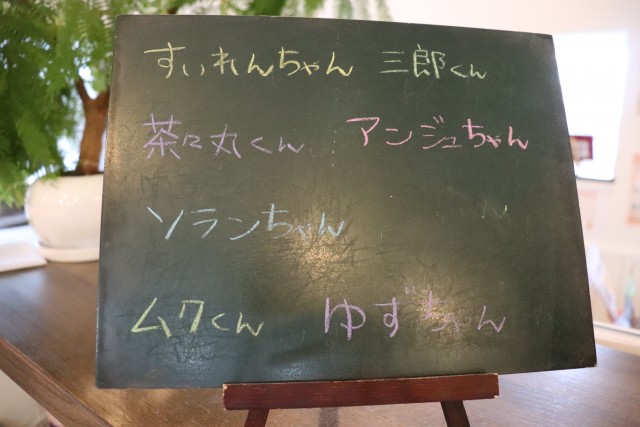 すいれんちゃん 三郎くん
茶々丸くん アンジュちゃん
ソランちゃん
ムクくん ゆずちゃん